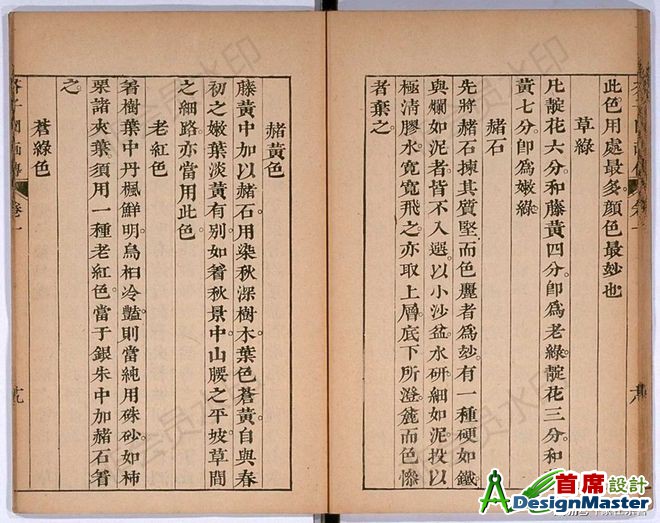 此色用處最多。顏色最玅也
草綠
凡靛花六分。和藤黃四分。卽爲老綠。靛花三分。和
黃七分。卽爲嫩綠
赭石
先將赭石揀其質堅。而色麗者爲玅。有一種硬如鐵
與爛如泥者皆不入選。以小沙盆水研細如泥。投以
極淸膠水。寬寬飛之。亦取上層底下所澄麄而色慘
者棄之
赭黃色
藤黃中加以赭石。用染秋深樹木葉色蒼黃。自與春
初之嫩葉淡黃有別。如着秋景中山腰之平坡。草間
之細路。亦當用此色
老紅色
着樹葉中丹楓鮮明。烏桕冷豔。則當純用硃砂。如柿
栗諸夾葉。須用一種老紅色。當于銀朱中加赭石着
之
蒼綠色
卷一
首席設計
ADesignMaster